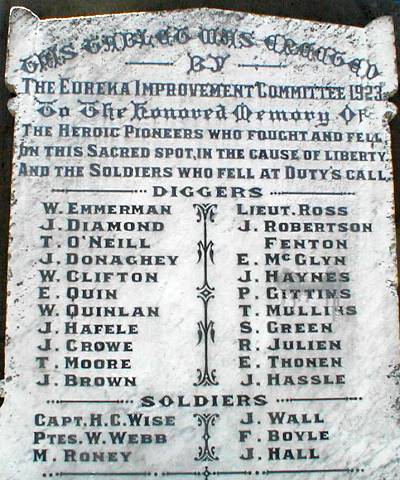 THIS TABLET WAS ERECTED
BY
THE EUREKA IMPROVEMENT COMMITTEE 1923
To The Honored Memory Of
THE HEROIC PIONEERS WHO FOUGHT AND FELL
ON THIS SACRED SPOT, IN THE CAUSE OF LIBERTY,
AND THE SOLDIERS WHO FELL AT DUTY'S CALL.
DIGGERS
W. EMMERMAN LIEUT. ROSS
J. DIAMOND J. ROBERTSON
T. O'NEILL FENTON
J. DONAGHEY E. McGLYN
W. CLIFTON J. HAYNES
E. QUIN P. GITTINS
W. QUINLAN T. MULLINS
J. HAFELE S. GREEN
J. CROWE R. JULIEN
T. MOORE E. THONEN
J. BROWN J. HASSLE
SOLDIERS
CAPT. H. C. WISE J. WALL
PTES. W. WEBB F. BOYLE
M. RONEY J. HALL